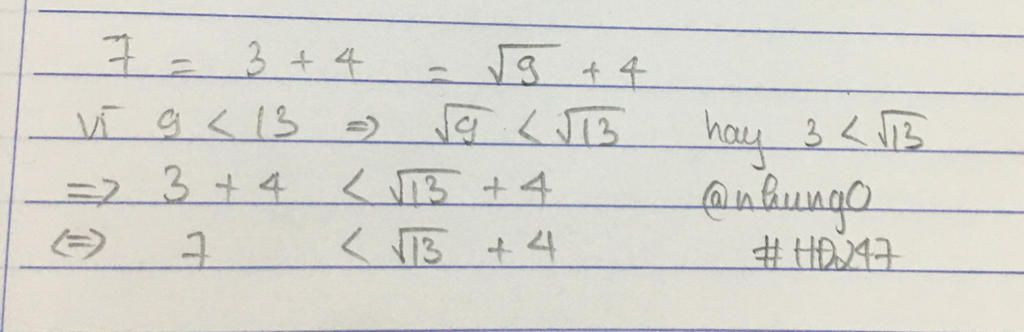 7 = 3 + 4 = √9 + 4
vì 9 < 13 => √9 < √13 hay 3 < √13
=> 3 + 4 < √13 + 4 @nhung0
<=> 7 < √13 + 4 #HD247